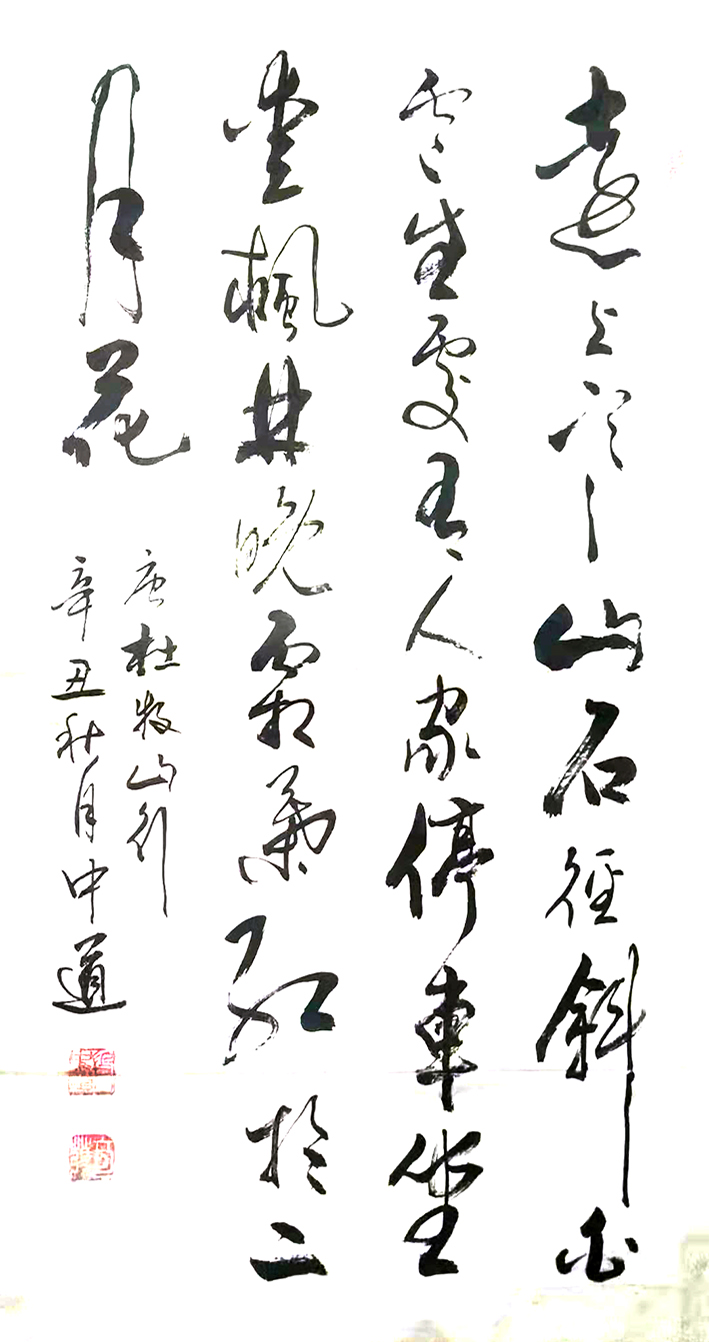 遠上寒山石徑斜白
雲生處有人家停車坐
愛楓林晚霜葉紅於二
月花
唐杜牧山行
辛丑秋月中道